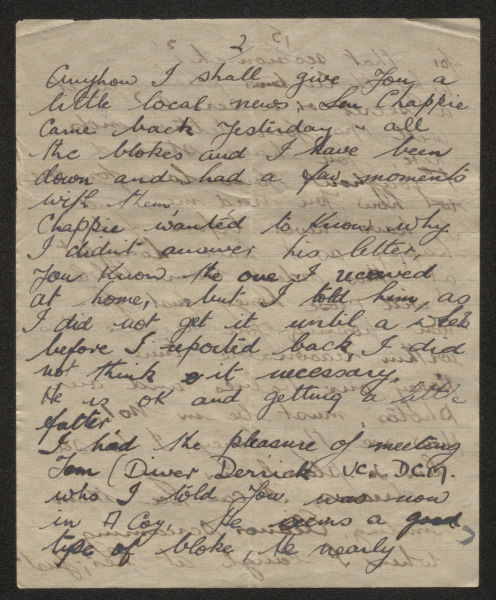 2
Anyhow I shall give You a
little local news Len Chappie
came back yesterday & all
the blokes and I have been
down and had a few moments
with them
Chappie wanted to know why
I didn't answer his letter,
You know the one I received
at home, but I told him, as
I did not get it until a week
before I reported back I did
not think it necessary.
He is OK and getting a little
fatter
I had the pleasure of meeting
Tom (Diver Derrick V.C. D.C.M.
who I told You was now
in A Coy. He seems a good
type of bloke, He nearly